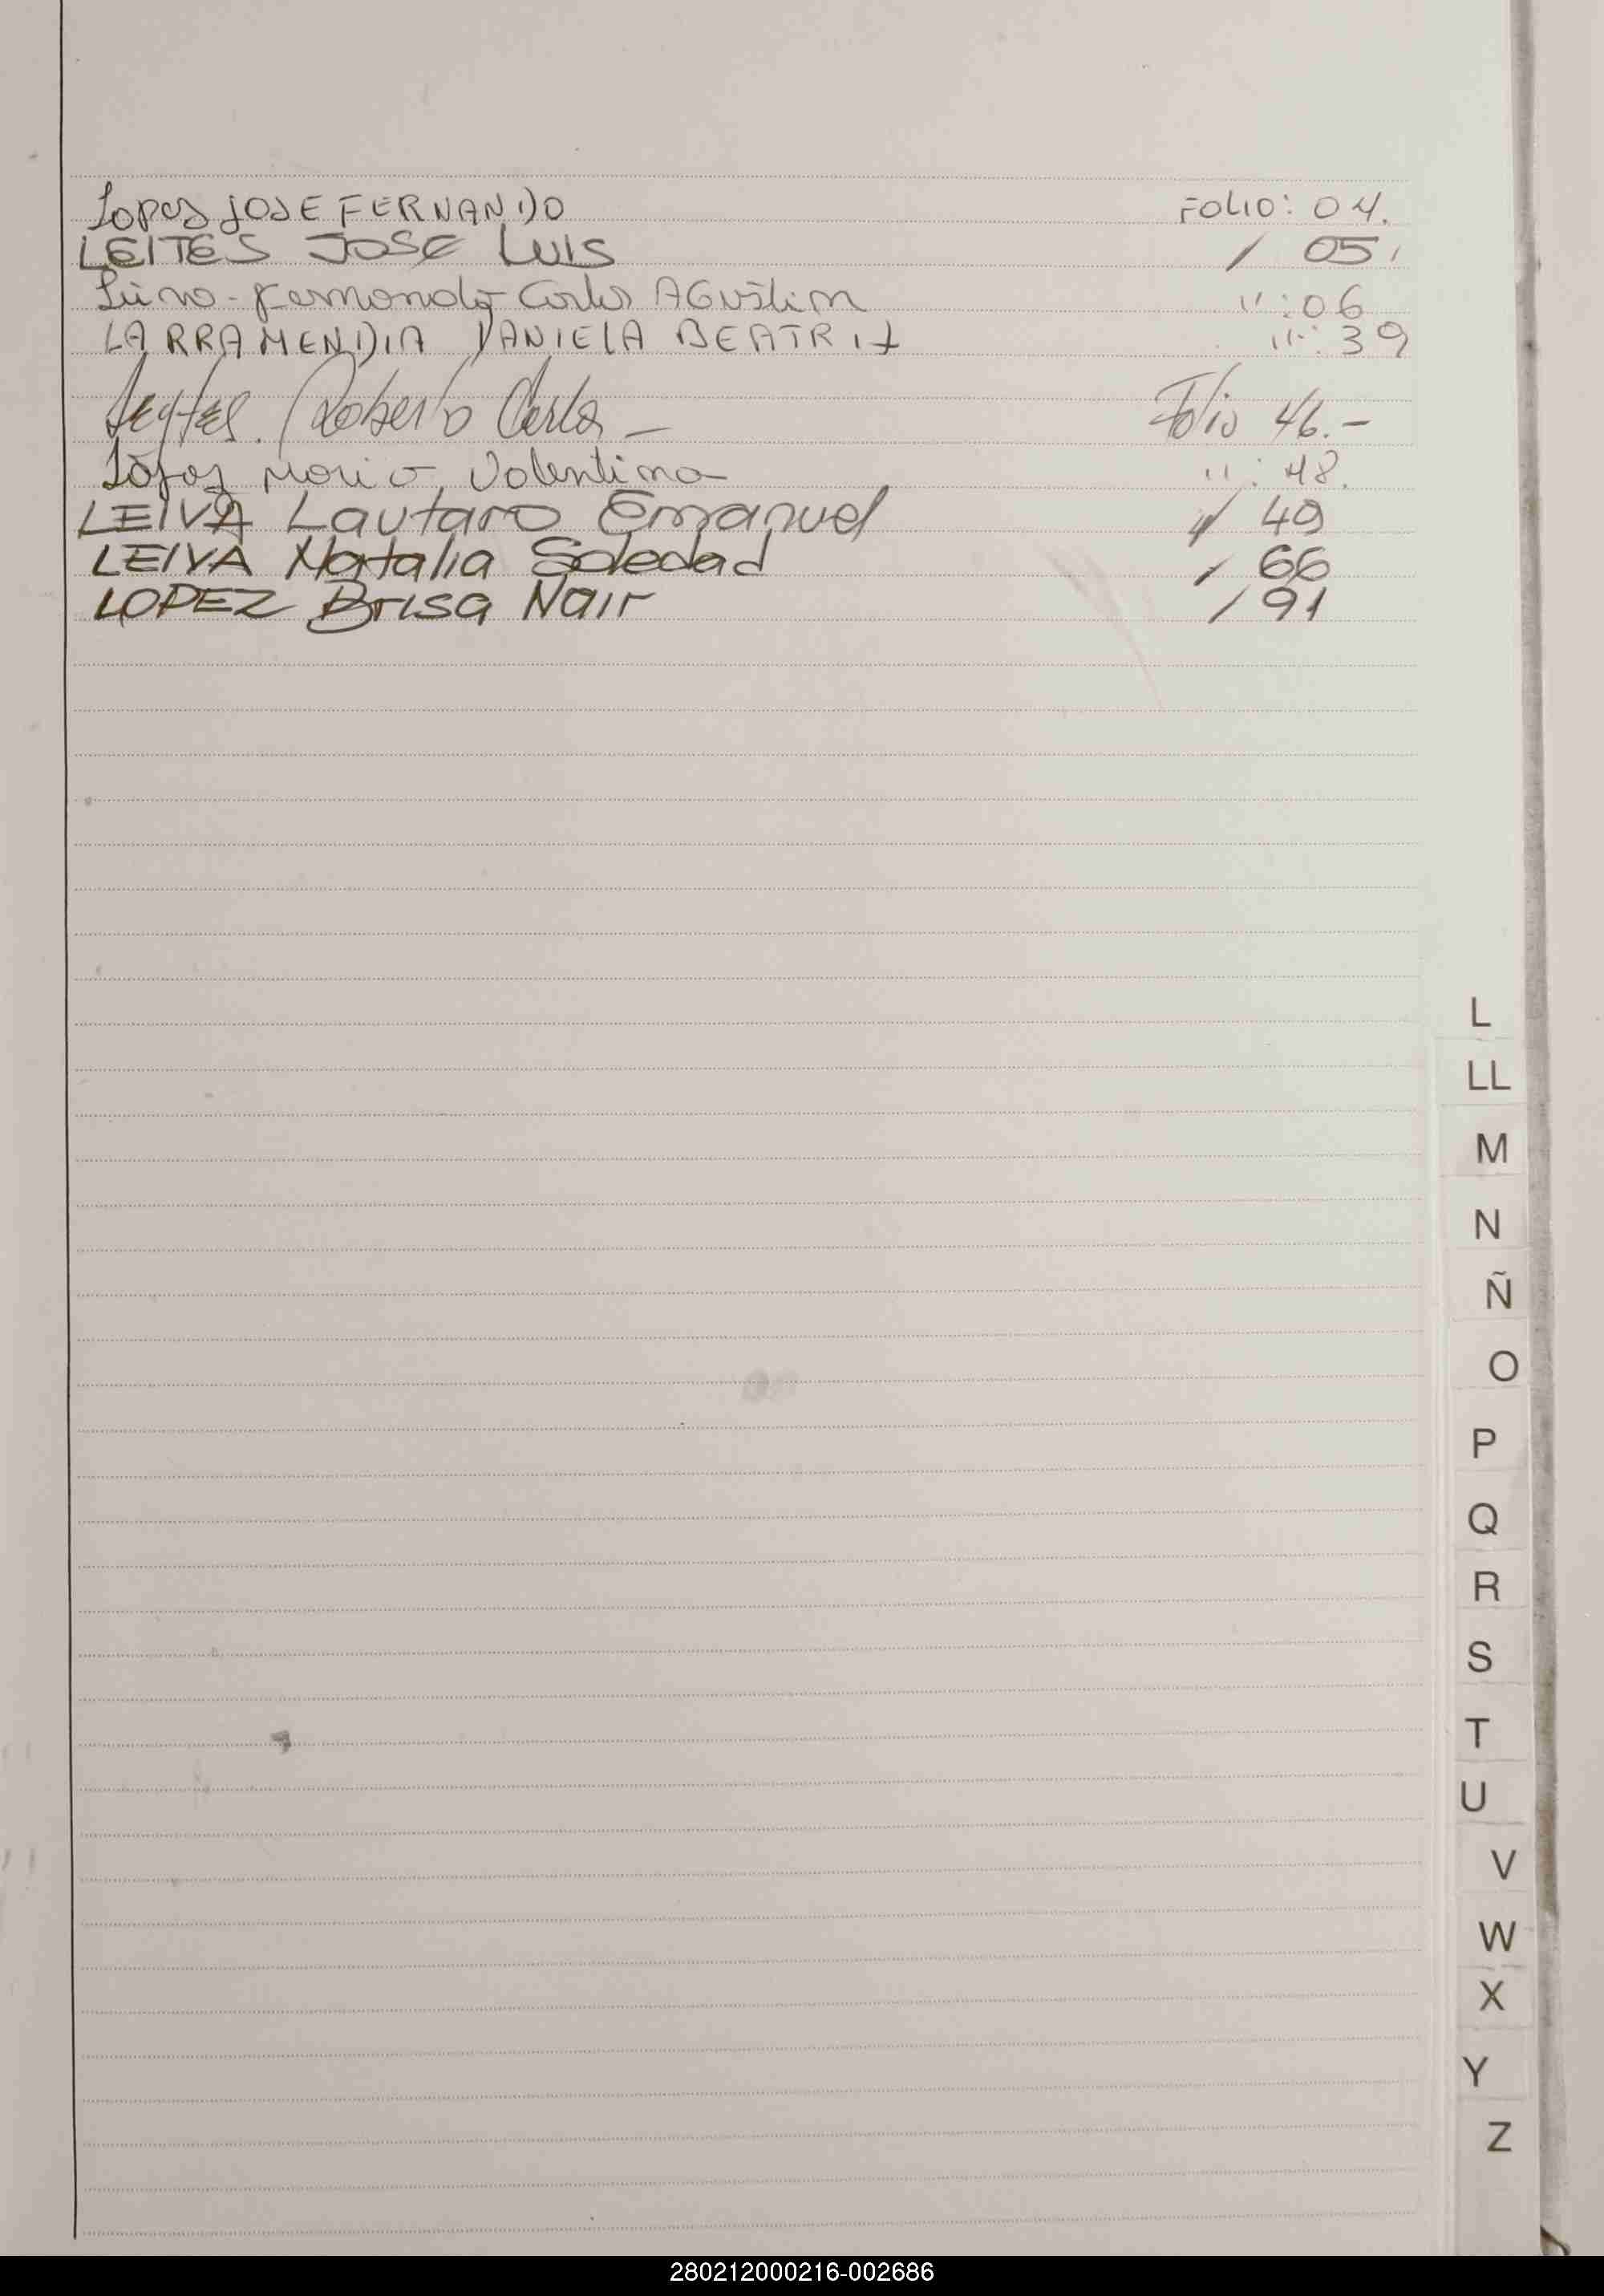 Lopes JOSE FERNANDO FOLIO: 04.
LEITES JOSE LUIS / 05,
Lino - Fernando Carlos AGustin '' : 06
LARRAMENDIA DANIELA BEATRIZ '' : 39
Leytes. Roberto Carlos - Folio 46.-
Maria Valentina '' : 48.
LEIVA Lautaro Emanuel / 49
LEIVA Natalia Soledad / 66
LOPEZ Brisa Nair / 91
L
LL
M
N
Ñ
O
P
Q
R
S
T
U
V
W
X
Y
Z
280212000216-002686